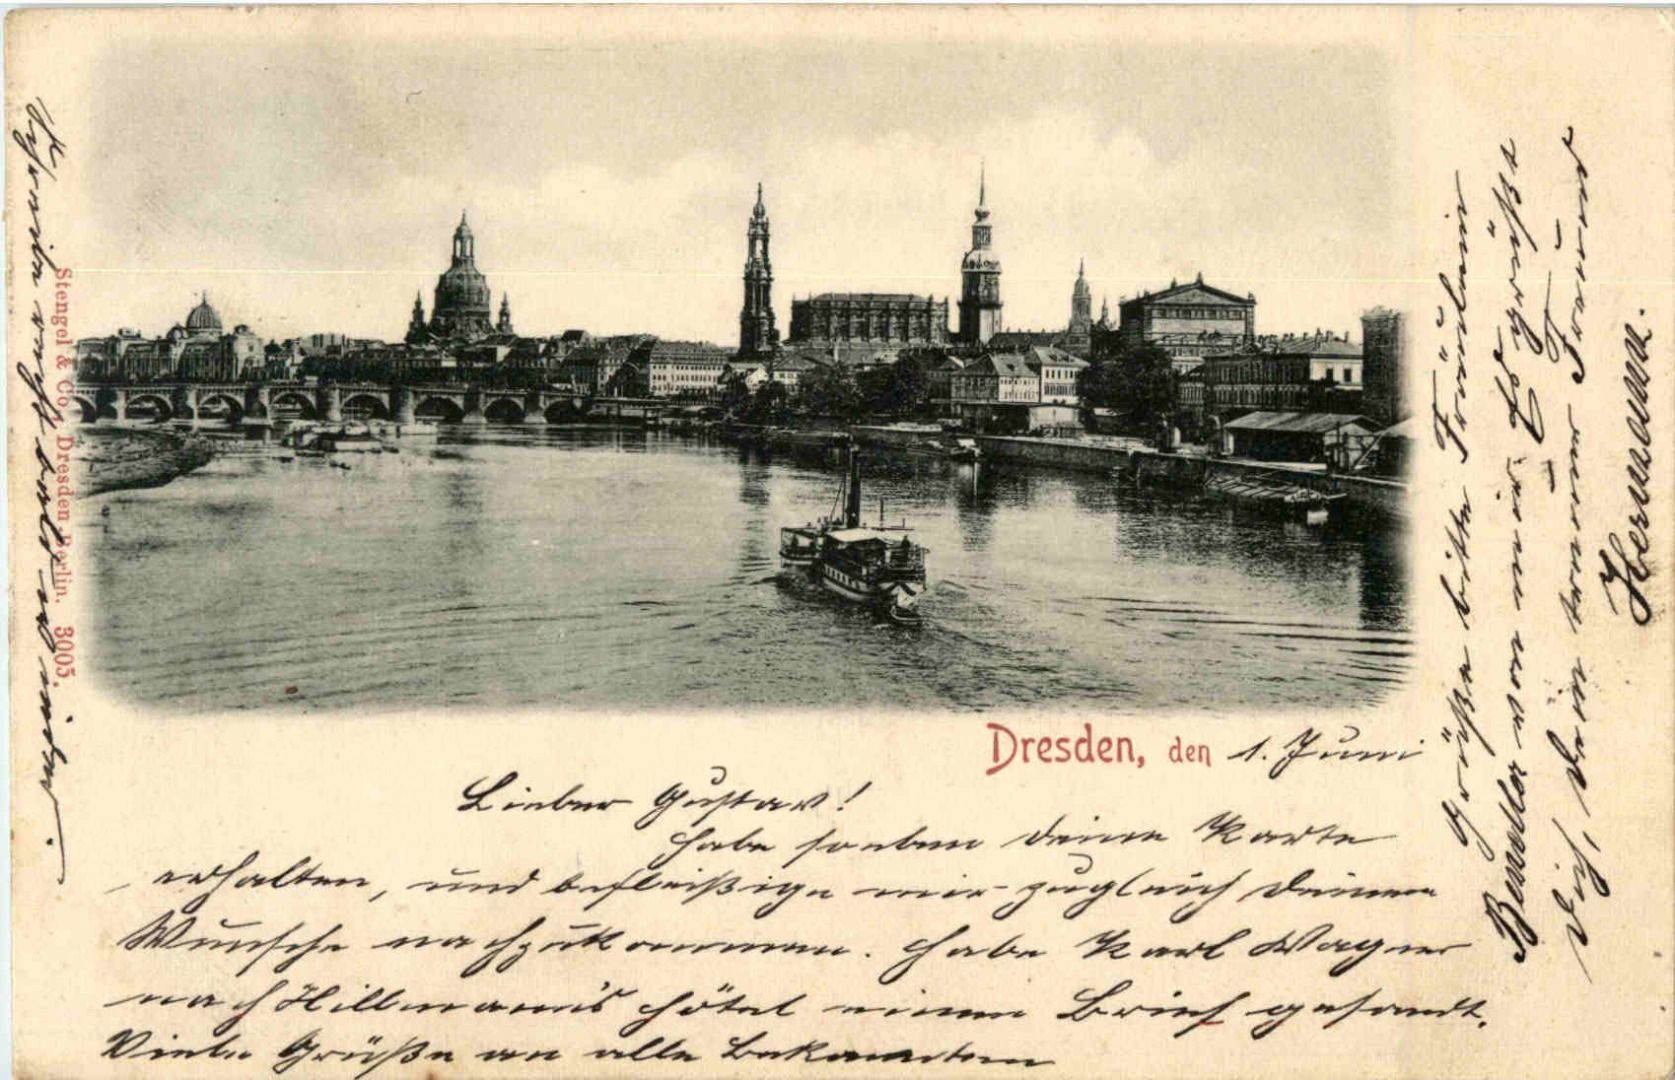 Dresden, den 1. Juni
Lieber Gustav!
Habe soeben deine Karte
erhalten, und befleißige mir zugleich deinem
Wunsche nachzukommen. Habe Karl Wagner
nach Hillmann's Hôtel einen Brief gesandt.
Viele Grüße an alle Bekannten
Grüße bitte Fräulein
von mir. Es grüßt
Dich, Dein treuer Freund
Hermann.
Schreibe recht bald wieder.
Stengel & Co., Dresden-Berlin. 3003.